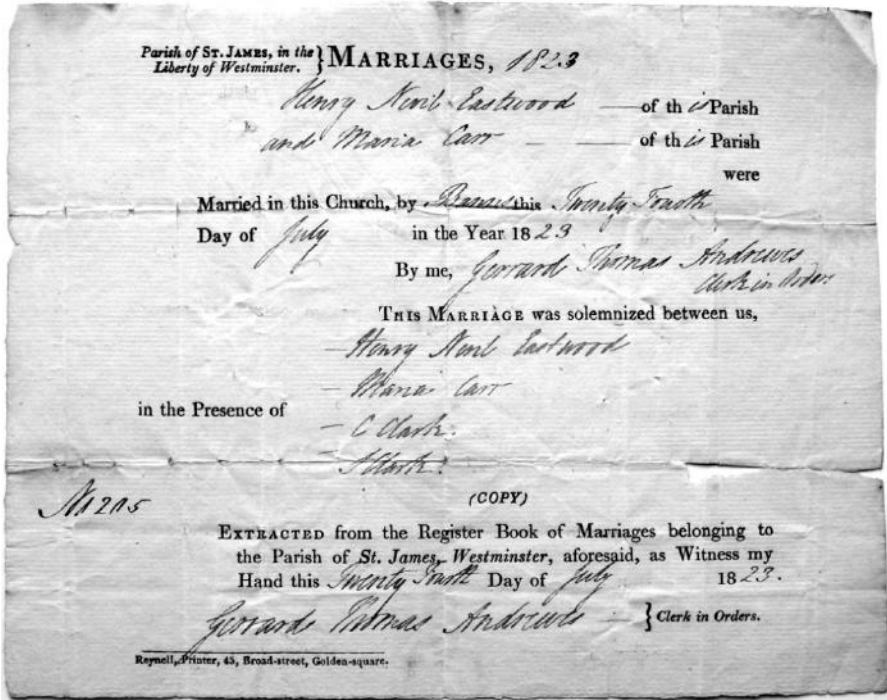 Parish of ST. JAMES, in the
Liberty of Westminster. } MARRIAGES, 1823
Henry Nevil Eastwood — of this Parish
and Maria Carr — — of this Parish
were
Married in this Church, by Banns this Twenty Fourth
Day of July in the Year 1823
By me, Gerrard Thomas Andrewes
Clerk in Orders
THIS MARRIAGE was solemnized between us,
— Henry Nevil Eastwood
— Maria Carr
in the Presence of
— C Clark.
Clark.
No 205
(COPY)
EXTRACTED from the Register Book of Marriages belonging to
the Parish of St. James, Westminster, aforesaid, as Witness my
Hand this Twenty Fourth Day of July 1823.
Gerrard Thomas Andrewes — } Clerk in Orders.
Reynell, Printer, 45, Broad-street, Golden-square.